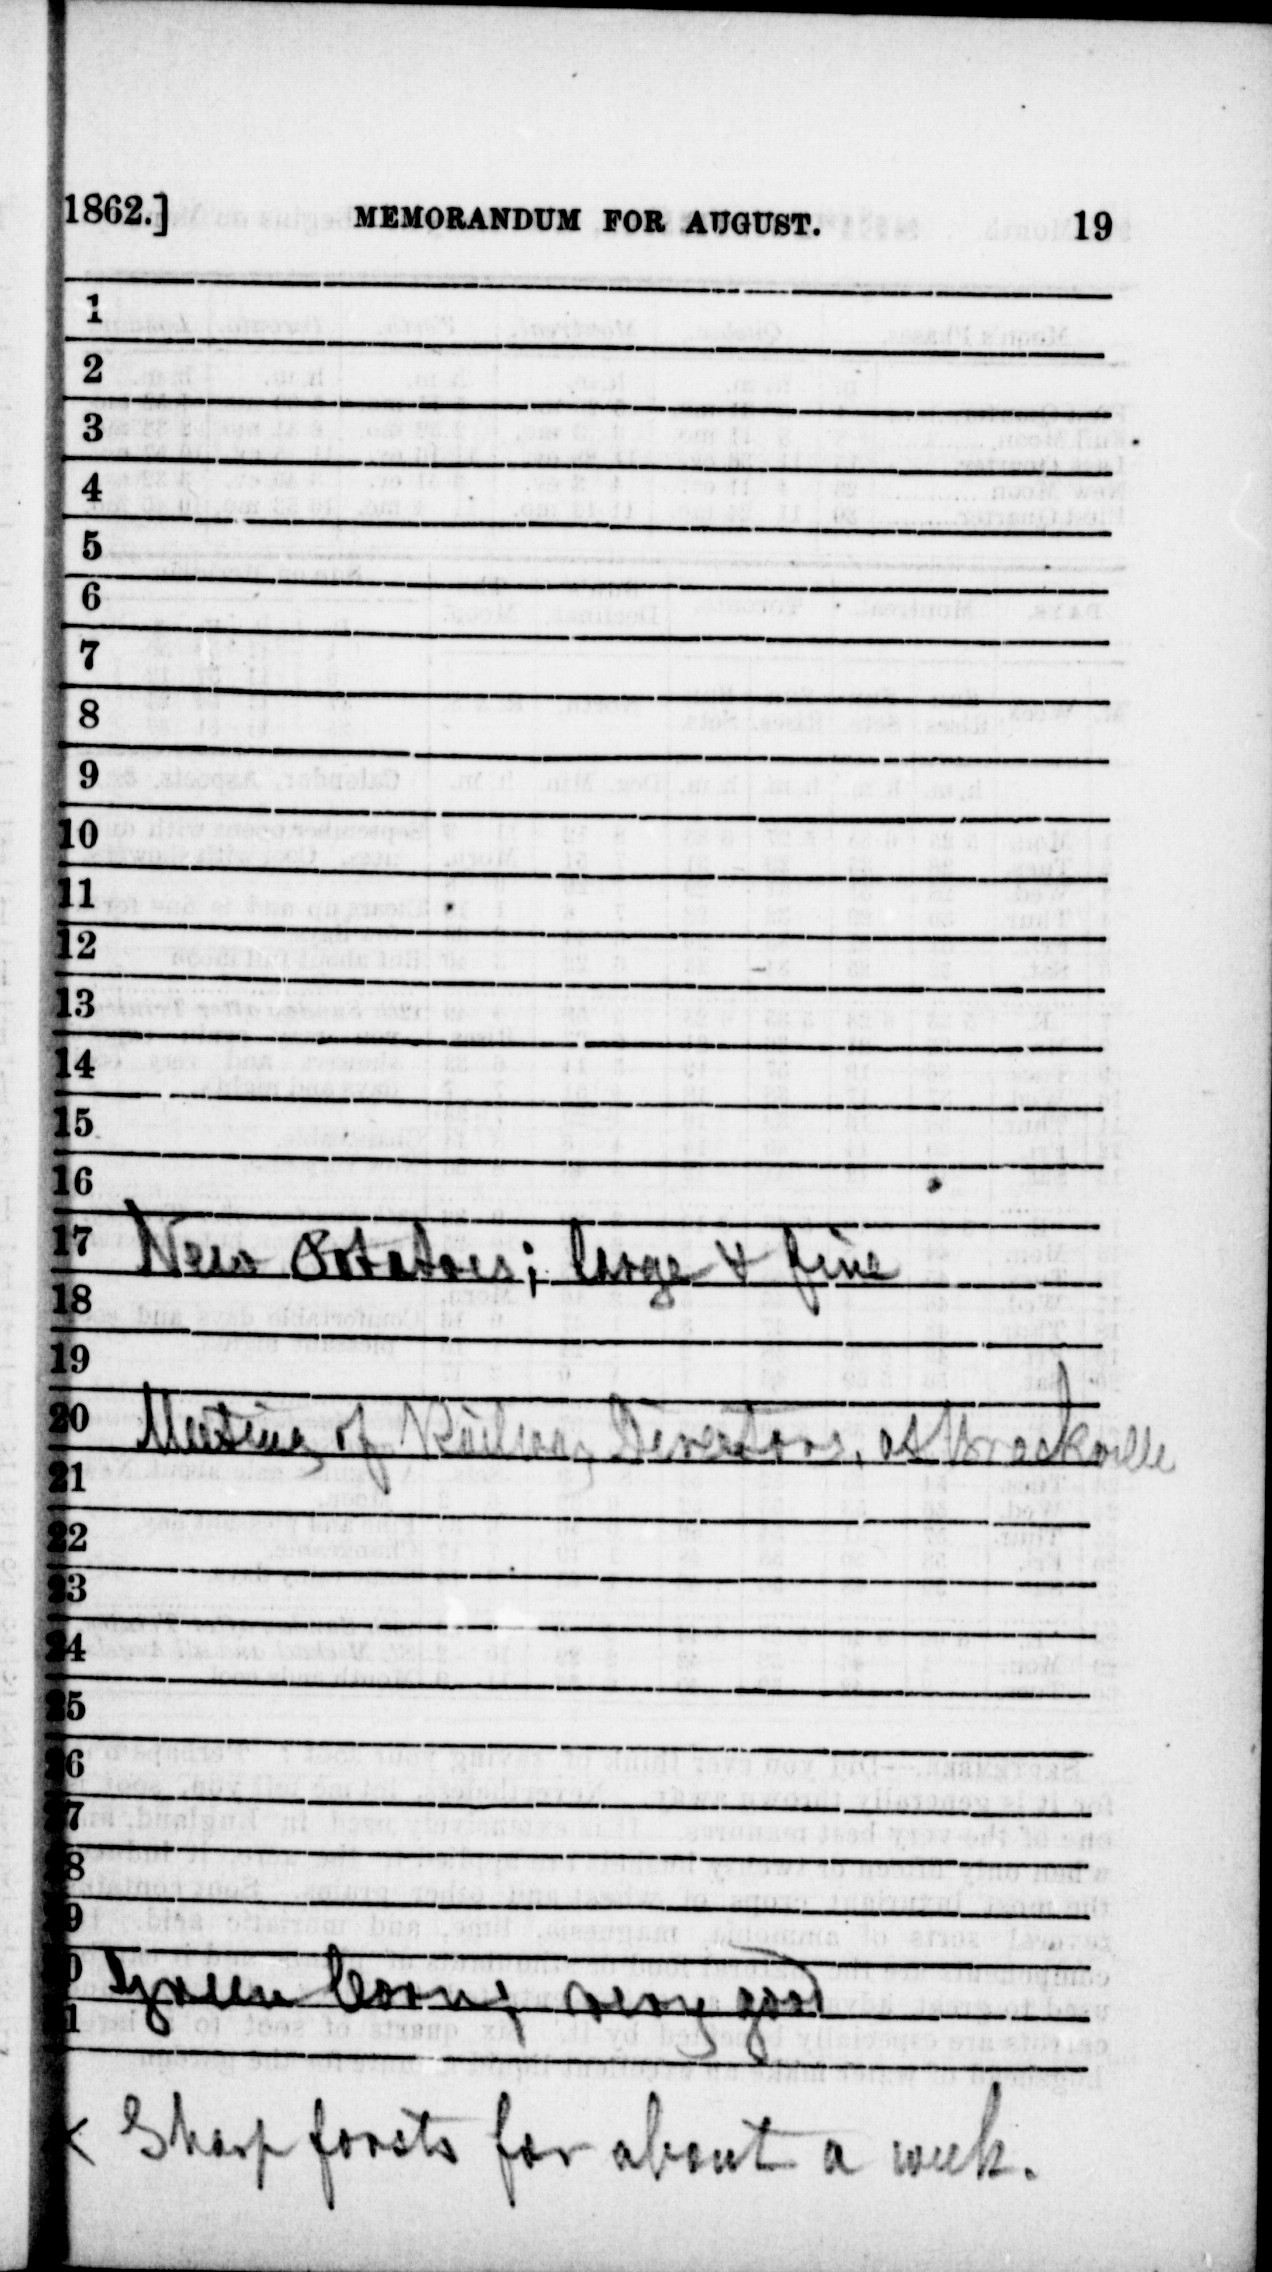 1862.] MEMORANDUM FOR AUGUST. 19
1
2
3
4
5
6
7
8
9
10
11
12
13
14
15
16
17 New Potatoes; large & fine
18
19
20 Meeting of Railway Directors, at Brockville
21
22
23
24
25
26
27
28
29
30 Green Corn; very good
31
× Sharp frosts for about a week.